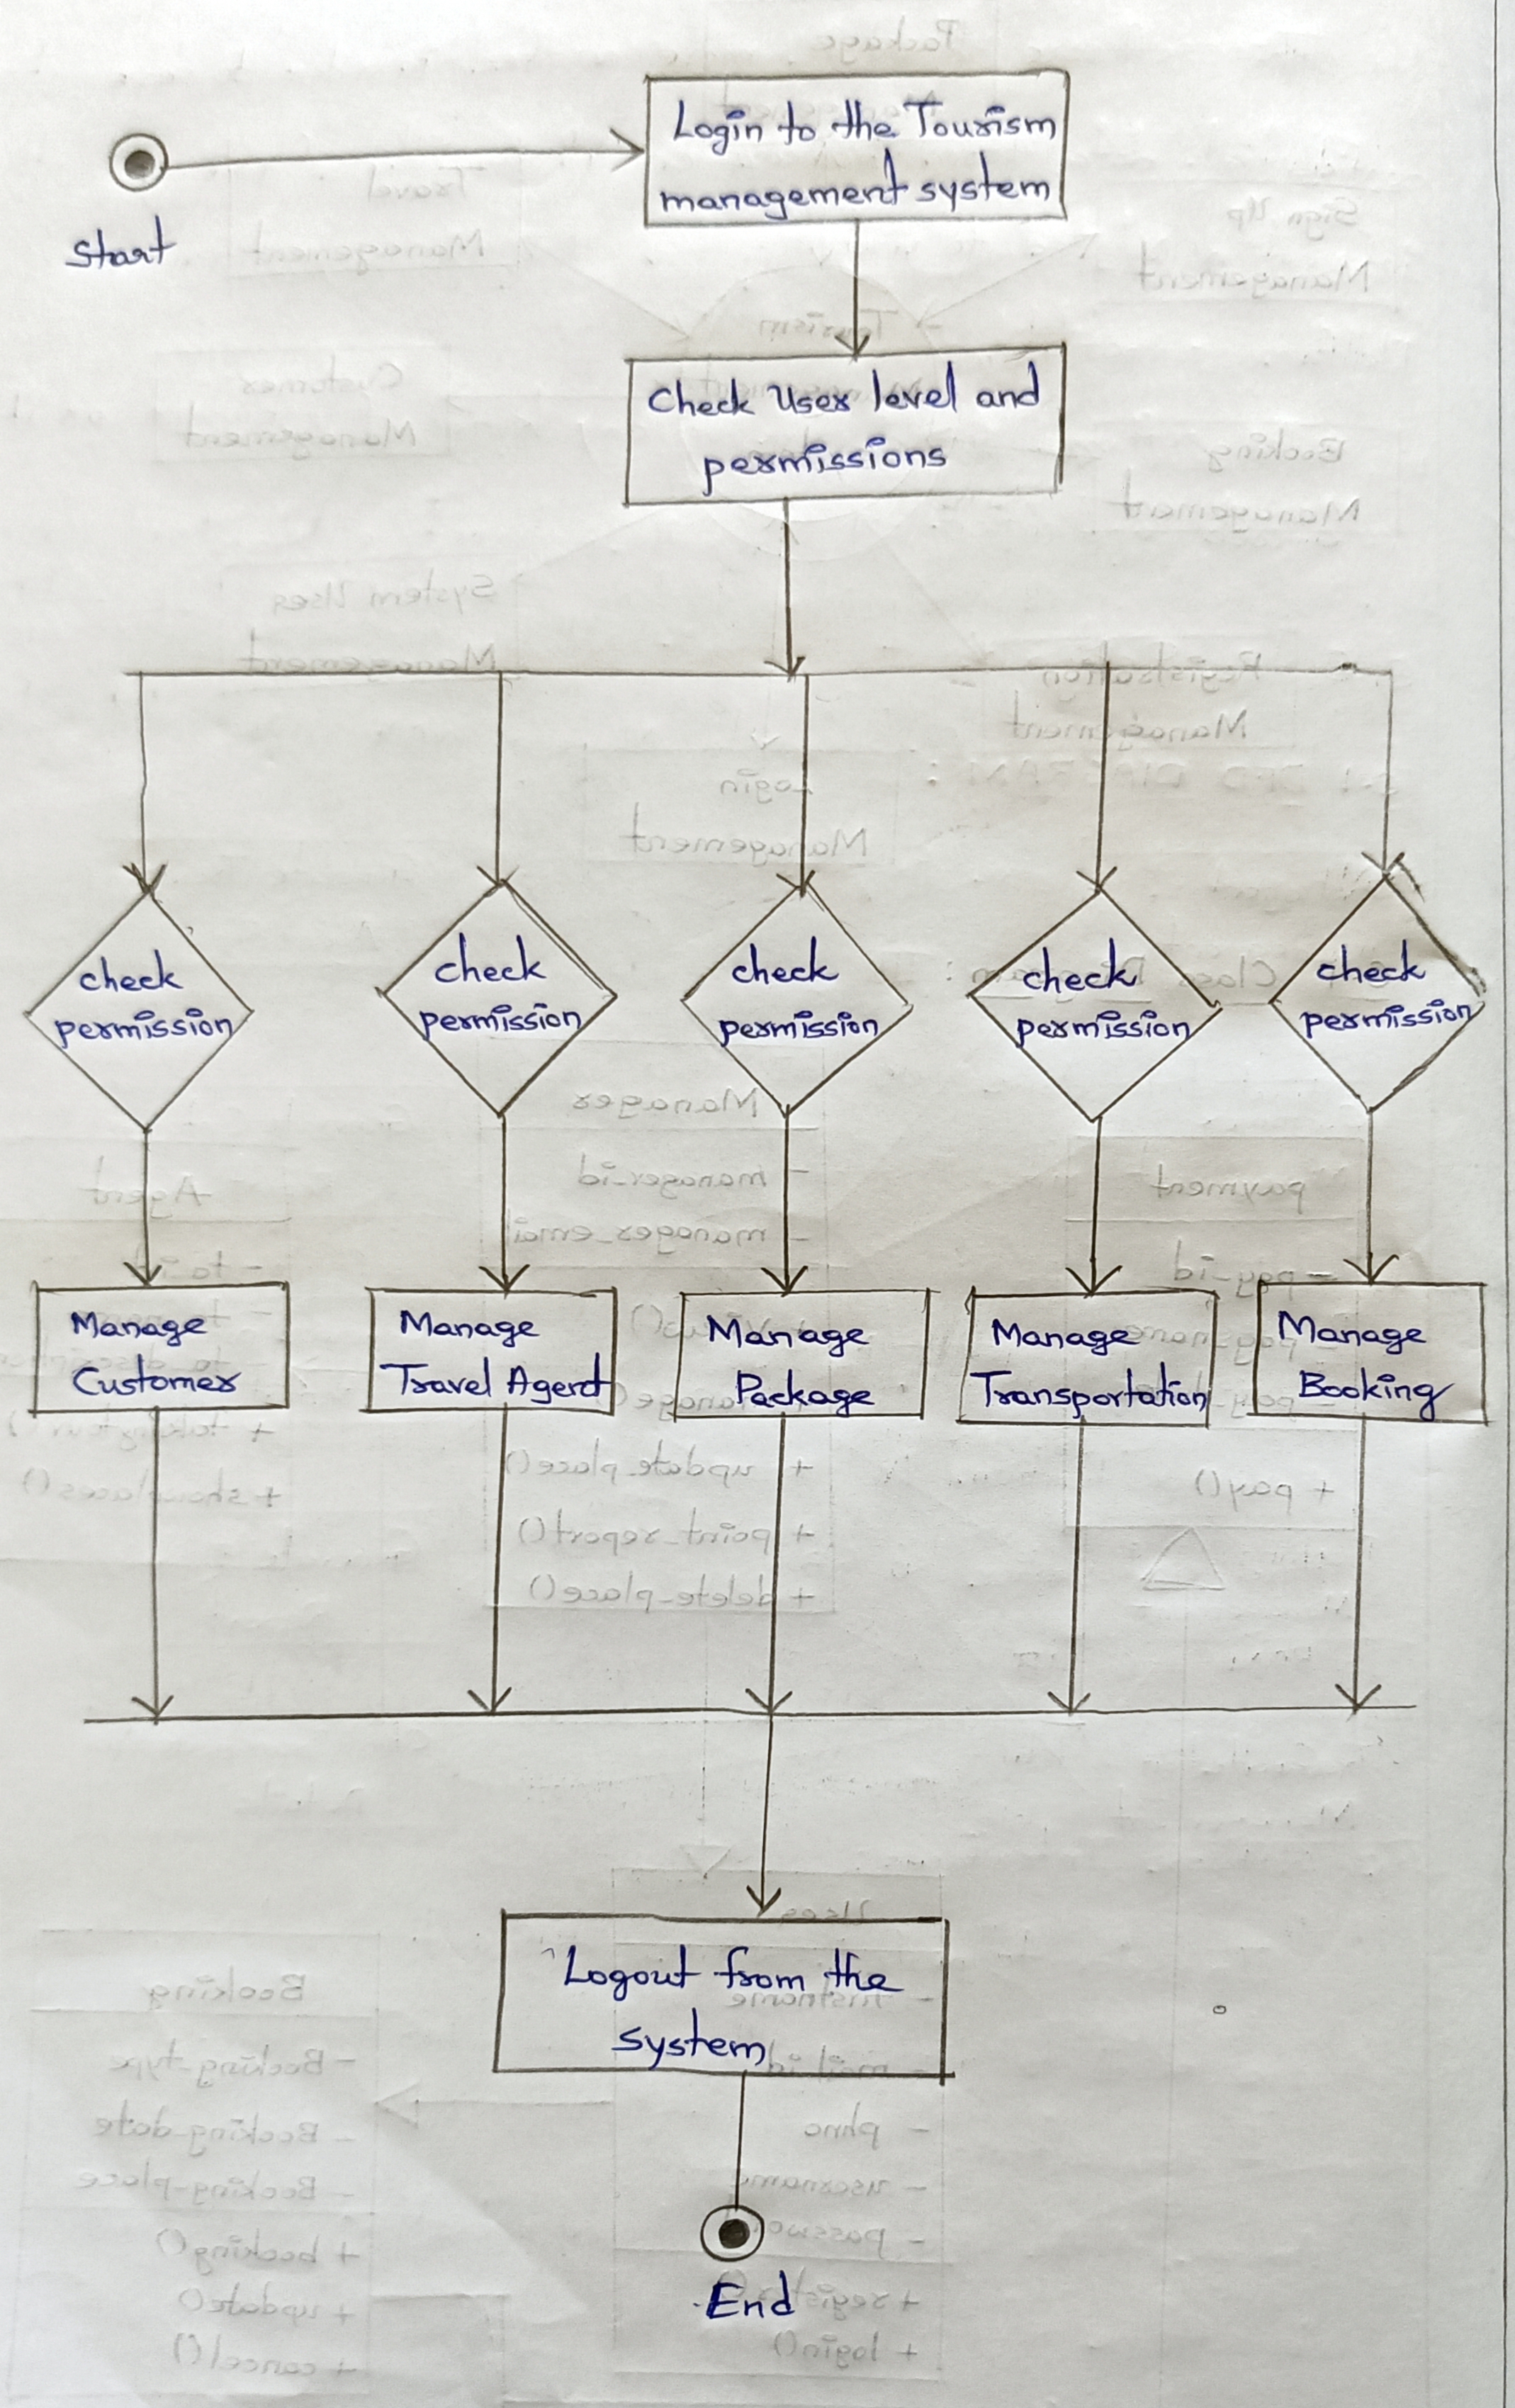 Login to the Tourism
management system
Start
Check User level and
permissions
check
permission
check
permission
check
permission
check
permission
check
permission
Manage
Customer
Manage
Travel Agent
Manage
Package
Manage
Transportation
Manage
Booking
Logout from the
system
End